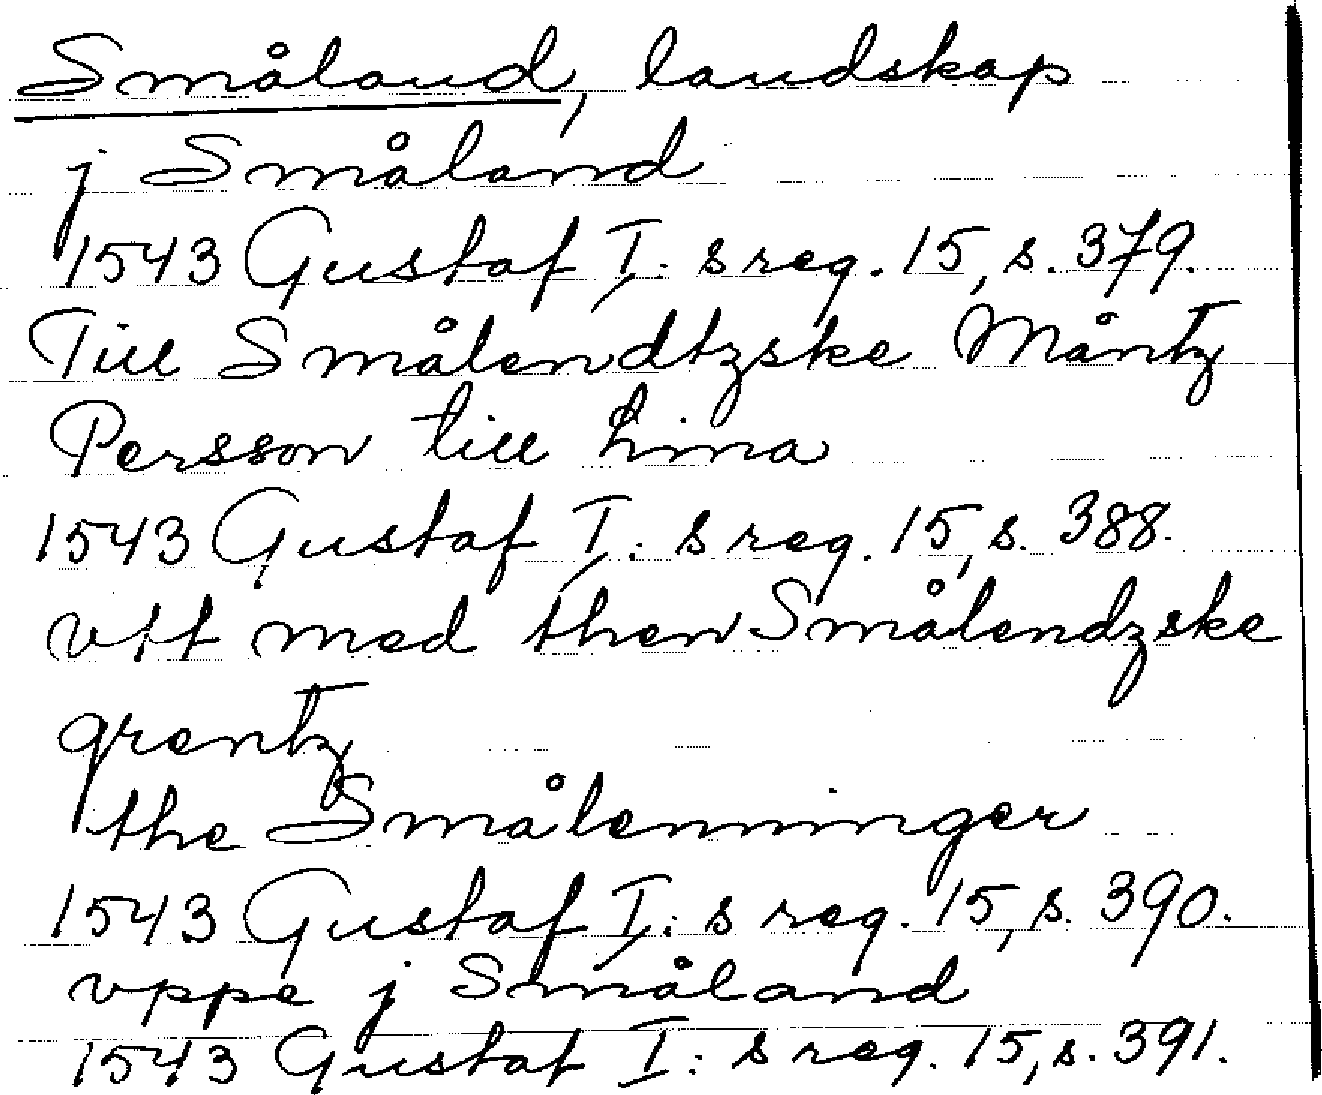 Småland, landskap
j Småland
1543 Gustaf I: s reg. 15, s. 379.
Till Smålendtzske Måntz
Persson till Lima
1543 Gustaf I: s reg. 15, s. 388.
vtt med then Smålendzske
grentz
the Smålenninger
1543 Gustaf I: s reg. 15, s. 390.
vppe j Småland
1543 Gustaf I: s reg. 15, s. 391.